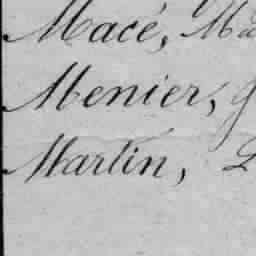 Macé,
Menier,
Martin,